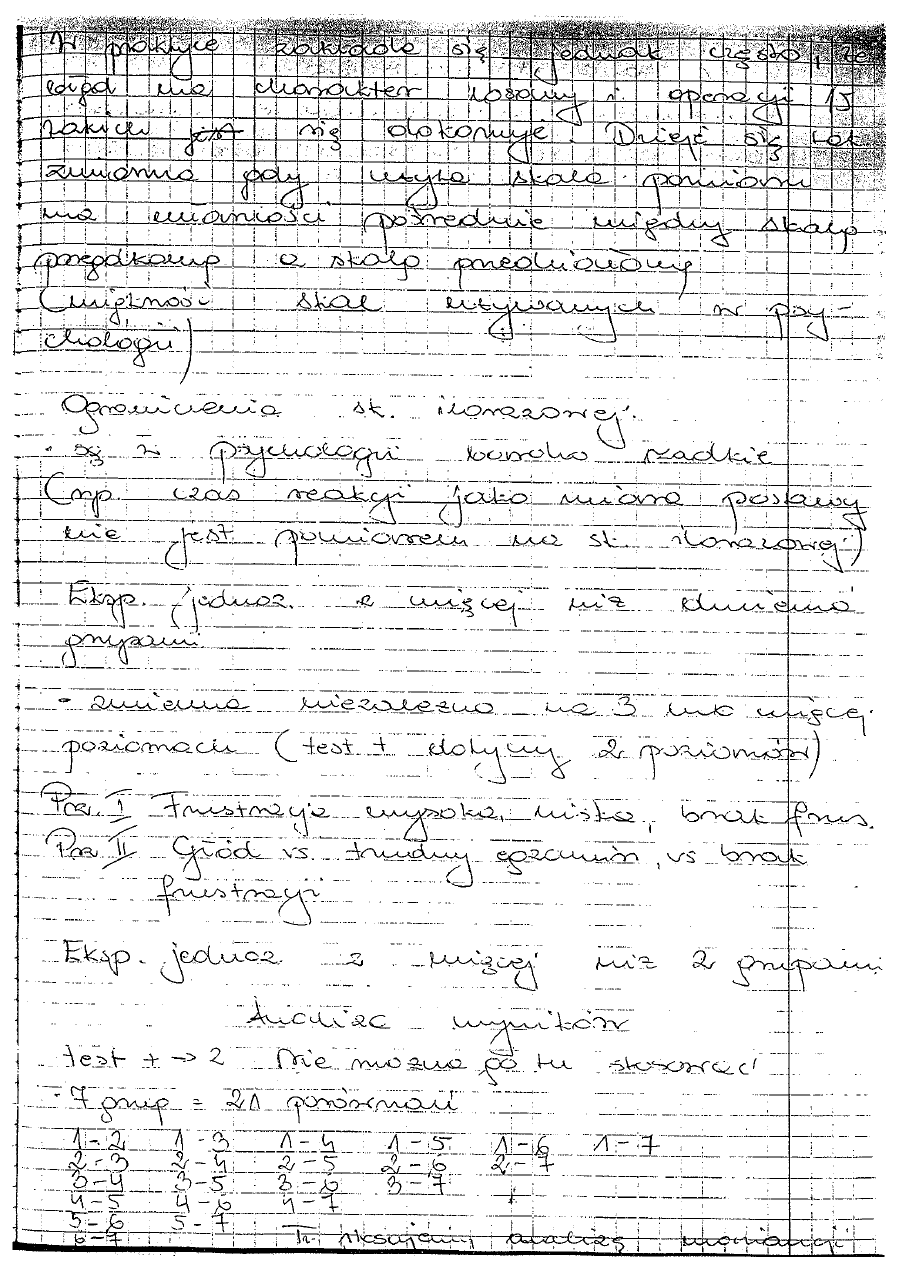 W praktyce zakłada się jednak często, że
błąd ma charakter losowy i operacji 15
takich się dokonuje. Dzieje się tak
zwłaszcza gdy użyta skala pomiaru
ma własności pośrednie między skalą
porządkową a skalą przedziałową
(większość skal używanych w psy-
chologii)
Ograniczenia sk. ilorazowej:
- są w psychologii bardzo rzadkie
(np. czas reakcji jako miara postawy
nie jest pomiarem na sk. ilorazowej)
Eksp. jednocz. z więcej niż dwiema
grupami
- zmienna niezależna na 3 lub więcej
poziomach (test t dotyczy 2 poziomów)
Prz. I Frustracja wysoka, niska, brak frus.
Prz. II Głód vs. trudny egzamin, vs brak
frustracji
Eksp. jednocz. z więcej niż 2 grupami
Analiza wyników
test t -> 2 Nie można go tu stosować
- 7 grup = 21 porównań
1-2 1-3 1-4 1-5 1-6 1-7
2-3 2-4 2-5 2-6 2-7
3-4 3-5 3-6 3-7
4-5 4-6 4-7
5-6 5-7
6-7 Tu stosujemy analizę wariancji